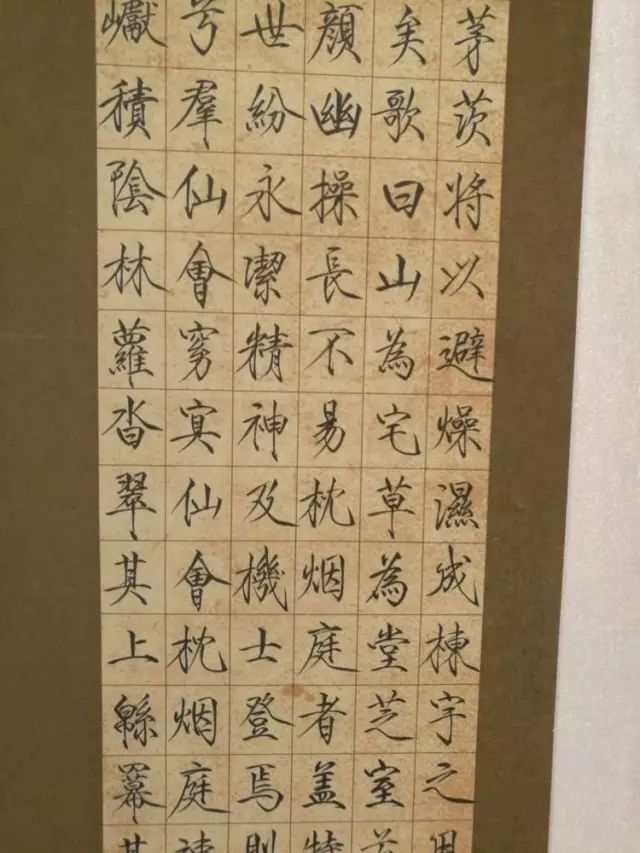 茅茨将以避燥濕成棟宇之用
矣歌曰山為宅草為堂芝室
顏幽操長不易枕烟庭者盖特
世紛永潔精神及機士登焉則
兮羣仙會窈㝠仙會枕烟庭
巘積陰林蘿沓翠其上緜冪其